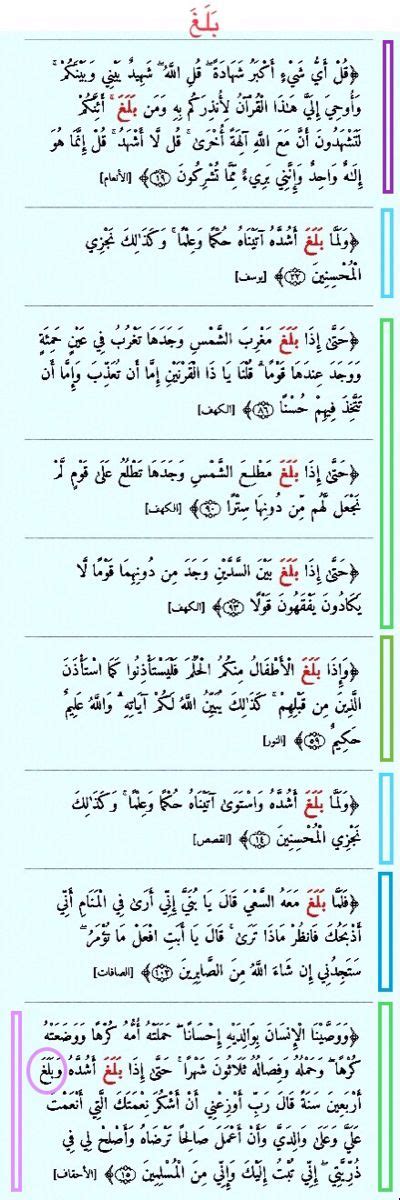 بَلَغَ
﴿قُلْ أَيُّ شَيْءٍ أَكْبَرُ شَهَادَةً ۖ قُلِ اللَّهُ ۖ شَهِيدٌ بَيْنِي وَبَيْنَكُمْ ۚ
وَأُوحِيَ إِلَيَّ هَٰذَا الْقُرْآنُ لِأُنذِرَكُم بِهِ وَمَن بَلَغَ ۚ أَئِنَّكُمْ
لَتَشْهَدُونَ أَنَّ مَعَ اللَّهِ آلِهَةً أُخْرَىٰ ۚ قُل لَّا أَشْهَدُ ۚ قُلْ إِنَّمَا هُوَ
إِلَٰهٌ وَاحِدٌ وَإِنَّنِي بَرِيءٌ مِّمَّا تُشْرِكُونَ ﴿١٩﴾ [الأنعام]
﴿وَلَمَّا بَلَغَ أَشُدَّهُ آتَيْنَاهُ حُكْمًا وَعِلْمًا ۚ وَكَذَٰلِكَ نَجْزِي
الْمُحْسِنِينَ ﴿٢٢﴾ [يوسف]
﴿حَتَّىٰ إِذَا بَلَغَ مَغْرِبَ الشَّمْسِ وَجَدَهَا تَغْرُبُ فِي عَيْنٍ حَمِئَةٍ
وَوَجَدَ عِندَهَا قَوْمًا ۗ قُلْنَا يَا ذَا الْقَرْنَيْنِ إِمَّا أَن تُعَذِّبَ وَإِمَّا أَن
تَتَّخِذَ فِيهِمْ حُسْنًا ﴿٨٦﴾ [الكهف]
﴿حَتَّىٰ إِذَا بَلَغَ مَطْلِعَ الشَّمْسِ وَجَدَهَا تَطْلُعُ عَلَىٰ قَوْمٍ لَّمْ
نَجْعَل لَّهُم مِّن دُونِهَا سِتْرًا ﴿٩٠﴾ [الكهف]
﴿حَتَّىٰ إِذَا بَلَغَ بَيْنَ السَّدَّيْنِ وَجَدَ مِن دُونِهِمَا قَوْمًا لَّا
يَكَادُونَ يَفْقَهُونَ قَوْلًا ﴿٩٣﴾ [الكهف]
﴿وَإِذَا بَلَغَ الْأَطْفَالُ مِنكُمُ الْحُلُمَ فَلْيَسْتَأْذِنُوا كَمَا اسْتَأْذَنَ
الَّذِينَ مِن قَبْلِهِمْ ۚ كَذَٰلِكَ يُبَيِّنُ اللَّهُ لَكُمْ آيَاتِهِ ۗ وَاللَّهُ عَلِيمٌ
حَكِيمٌ ﴿٥٩﴾ [النور]
﴿وَلَمَّا بَلَغَ أَشُدَّهُ وَاسْتَوَىٰ آتَيْنَاهُ حُكْمًا وَعِلْمًا ۚ وَكَذَٰلِكَ
نَجْزِي الْمُحْسِنِينَ ﴿١٤﴾ [القصص]
﴿فَلَمَّا بَلَغَ مَعَهُ السَّعْيَ قَالَ يَا بُنَيَّ إِنِّي أَرَىٰ فِي الْمَنَامِ أَنِّي
أَذْبَحُكَ فَانظُرْ مَاذَا تَرَىٰ ۚ قَالَ يَا أَبَتِ افْعَلْ مَا تُؤْمَرُ ۖ
سَتَجِدُنِي إِن شَاءَ اللَّهُ مِنَ الصَّابِرِينَ ﴿١٠٢﴾ [الصافات]
﴿وَوَصَّيْنَا الْإِنسَانَ بِوَالِدَيْهِ إِحْسَانًا ۖ حَمَلَتْهُ أُمُّهُ كُرْهًا وَوَضَعَتْهُ
كُرْهًا ۖ وَحَمْلُهُ وَفِصَالُهُ ثَلَاثُونَ شَهْرًا ۚ حَتَّىٰ إِذَا بَلَغَ أَشُدَّهُ وَبَلَغَ
أَرْبَعِينَ سَنَةً قَالَ رَبِّ أَوْزِعْنِي أَنْ أَشْكُرَ نِعْمَتَكَ الَّتِي أَنْعَمْتَ
عَلَيَّ وَعَلَىٰ وَالِدَيَّ وَأَنْ أَعْمَلَ صَالِحًا تَرْضَاهُ وَأَصْلِحْ لِي فِي
ذُرِّيَّتِي ۖ إِنِّي تُبْتُ إِلَيْكَ وَإِنِّي مِنَ الْمُسْلِمِينَ ﴿١٥﴾ [الأحقاف]